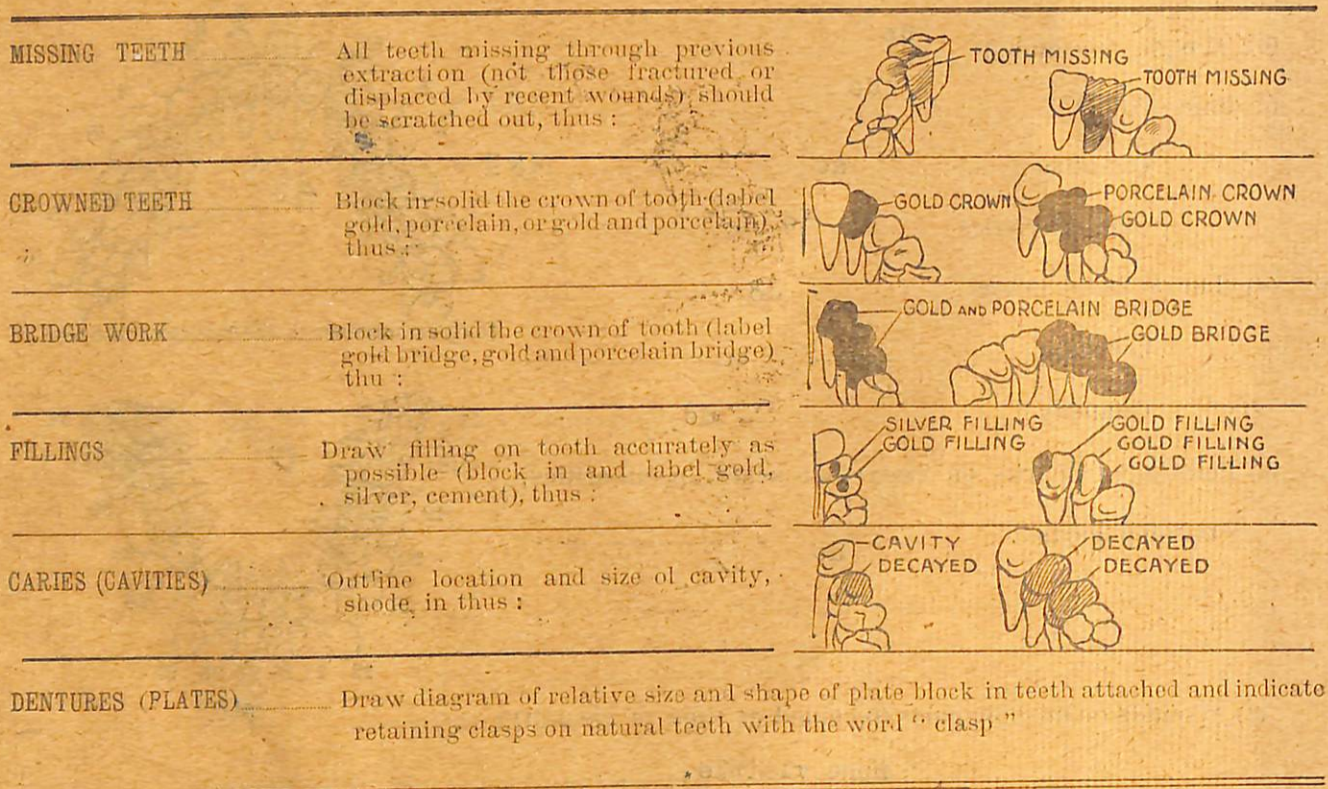 MISSING TEETH
All teeth missing through previous
extraction (not those fractured or
displaced by recent wounds) should
be scratched out, thus :
TOOTH MISSING
TOOTH MISSING
CROWNED TEETH
Block in solid the crown of tooth (label
gold, porcelain, or gold and porcelain),
thus :
GOLD CROWN
PORCELAIN CROWN
GOLD CROWN
BRIDGE WORK
Block in solid the crown of tooth (label
gold bridge, gold and porcelain bridge)
thu :
GOLD AND PORCELAIN BRIDGE
GOLD BRIDGE
FILLINGS
Draw filling on tooth accurately as
possible (block in and label gold,
silver, cement), thus :
SILVER FILLING
GOLD FILLING
GOLD FILLING
GOLD FILLING
GOLD FILLING
CARIES (CAVITIES)
Outline location and size of cavity,
shode in thus :
CAVITY
DECAYED
DECAYED
DECAYED
DENTURES (PLATES)
Draw diagram of relative size and shape of plate block in teeth attached and indicate
retaining clasps on natural teeth with the word “ clasp ”